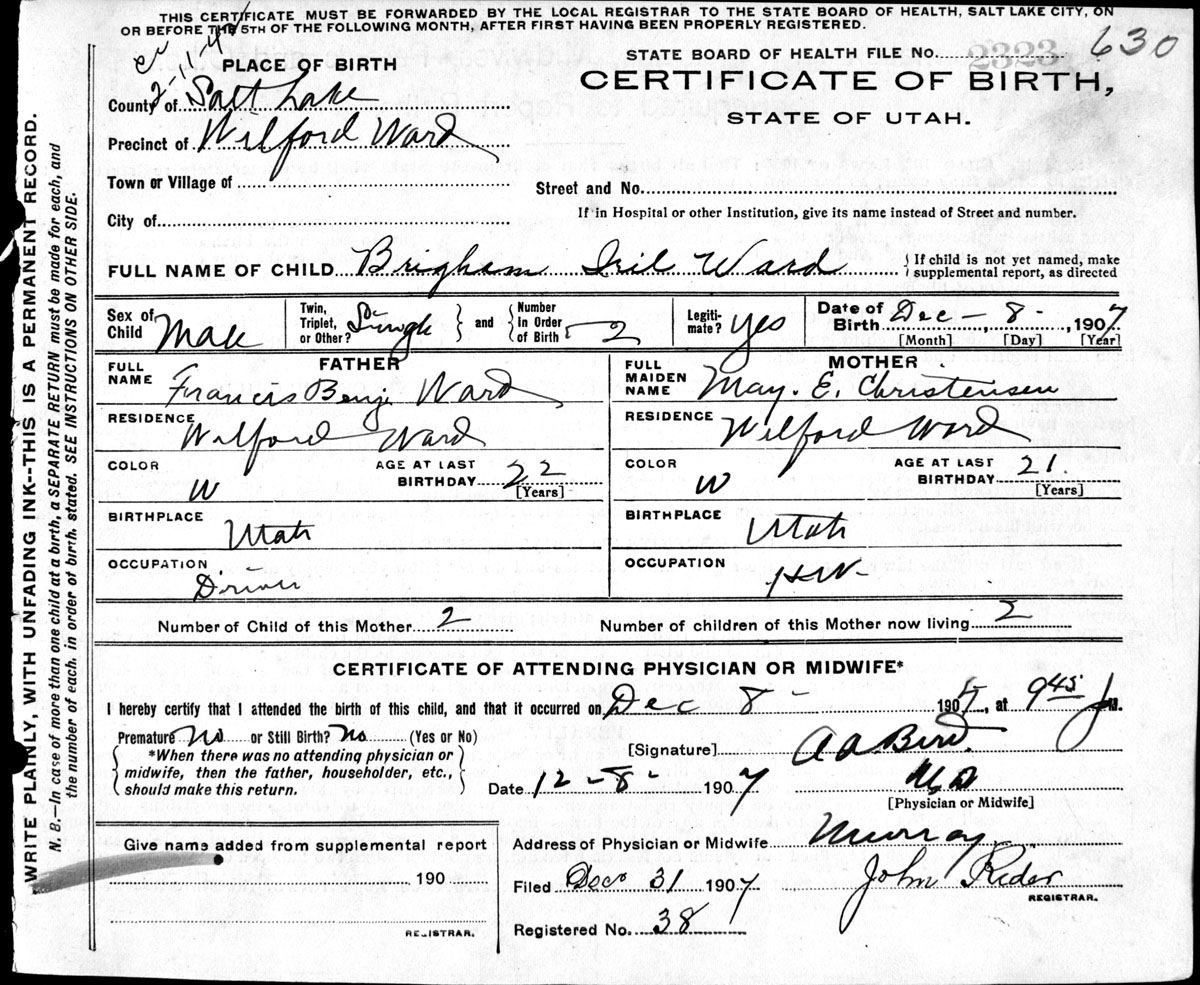 THIS CERTIFICATE MUST BE FORWARDED BY THE LOCAL REGISTRAR TO THE STATE BOARD OF HEALTH, SALT LAKE CITY, ON
OR BEFORE THE 5TH OF THE FOLLOWING MONTH, AFTER FIRST HAVING BEEN PROPERLY REGISTERED.
STATE BOARD OF HEALTH FILE No. 2323 630
CERTIFICATE OF BIRTH,
STATE OF UTAH.
PLACE OF BIRTH
County of Salt Lake
Precinct of Wilford Ward
Town or Village of
Street and No.
City of
If in Hospital or other Institution, give its name instead of Street and number.
FULL NAME OF CHILD Brigham Iril Ward
If child is not yet named, make
supplemental report, as directed
Sex of Child Male
Twin, Triplet, or Other? Single and Number In Order of Birth 2
Legiti-mate? Yes
Date of Birth Dec - 8 - , 1907
[Month] [Day] [Year]
FATHER
FULL NAME Francis Benj. Ward
RESIDENCE Wilford Ward
COLOR W
AGE AT LAST BIRTHDAY 22 [Years]
BIRTHPLACE Utah
OCCUPATION Driver
MOTHER
FULL MAIDEN NAME May. E. Christensen
RESIDENCE Wilford Ward
COLOR W
AGE AT LAST BIRTHDAY 21. [Years]
BIRTHPLACE Utah
OCCUPATION HW.
Number of Child of this Mother 2
Number of children of this Mother now living 2
CERTIFICATE OF ATTENDING PHYSICIAN OR MIDWIFE*
I hereby certify that I attended the birth of this child, and that it occurred on Dec 8 - 1907, at 9 45 M.
Premature No or Still Birth? No (Yes or No)
*When there was no attending physician or
midwife, then the father, householder, etc.,
should make this return.
[Signature] A A Bird
Date 12 - 8 - 1907
MD
[Physician or Midwife]
Give name added from supplemental report
190
REGISTRAR.
Address of Physician or Midwife Murray
Filed Dec 31 1907
John Rider
REGISTRAR.
Registered No. 38
WRITE PLAINLY, WITH UNFADING INK--THIS IS A PERMANENT RECORD.
N. B.—In case of more than one child at a birth, a SEPARATE RETURN must be made for each, and
the number of each, in order of birth, stated. SEE INSTRUCTIONS ON OTHER SIDE.